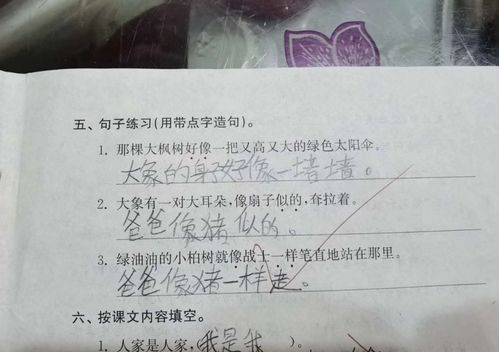 五、句子练习(用带点字造句)。
1. 那棵大枫树好像一把又高又大的绿色太阳伞。
大象的身子好像一堵墙。
2. 大象有一对大耳朵,像扇子似的,耷拉着。
爸爸像猪似的。
3. 绿油油的小柏树就像战士一样笔直地站在那里。
爸爸像猪一样走。
六、按课文内容填空。
1. 人家是人家,(我是我)。